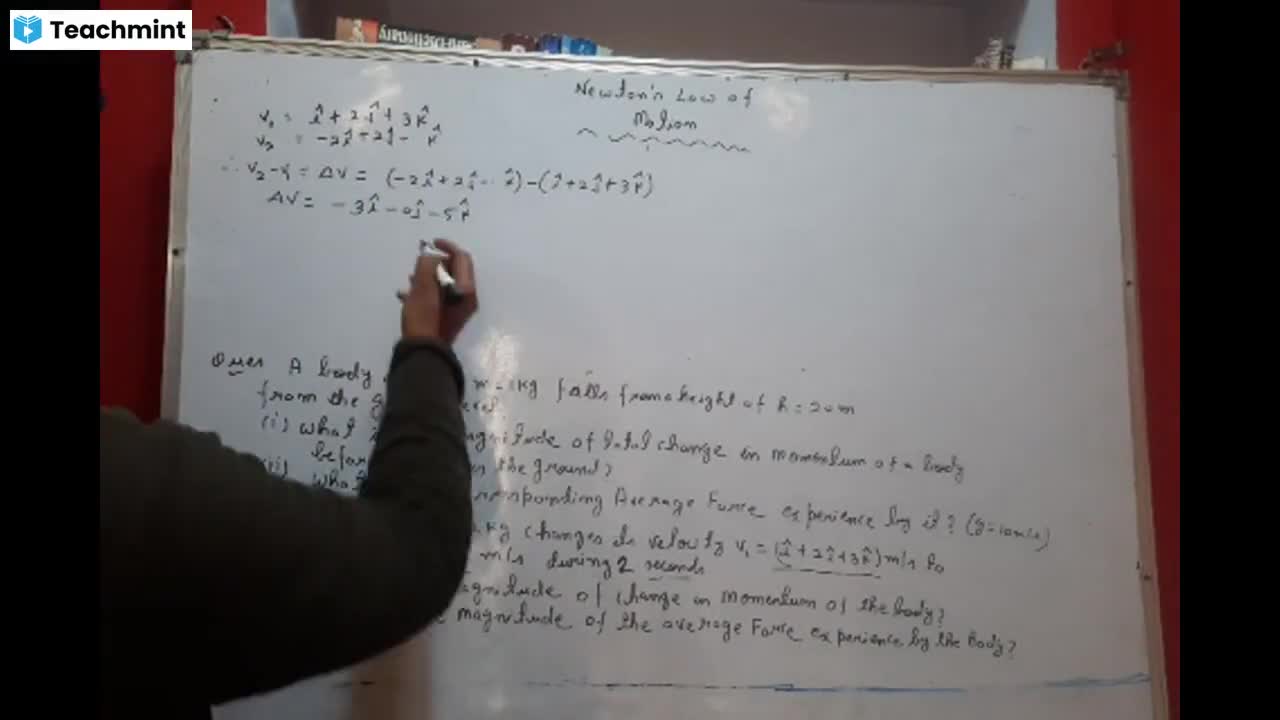 Teachmint
Newton's Law of
Motion
v₁ = î + 2ĵ + 3k̂
v₂ = -2î + 2ĵ - k̂
∴ v₂ - v₁ = ΔV = (-2î + 2ĵ - k̂) - (î + 2ĵ + 3k̂)
ΔV = -3î - 0ĵ - 5k̂
Ques A body kg falls from a height of h = 20m
from the
(i) what magnitude of total change in momentum of a body
the ground?
(ii) what Average Force experience by it? (g=10m/s)
kg changes its velocity v₁ = (î + 2ĵ + 3k̂) m/s to
m/s during 2 seconds
magnitude of change in momentum of the body?
magnitude of the average Force experience by the Body?